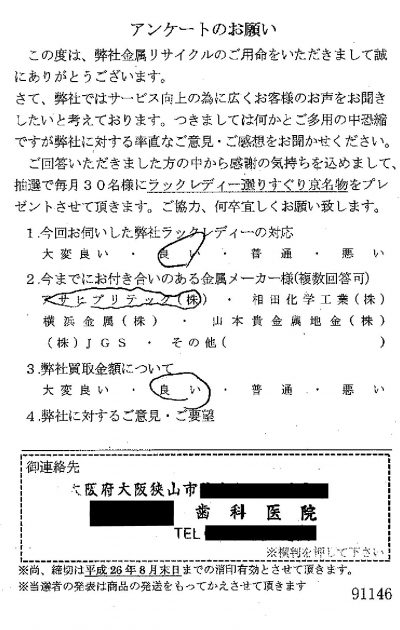 アンケートのお願い
この度は、弊社金属リサイクルのご用命をいただきまして誠
にありがとうございます。
さて、弊社ではサービス向上の為に広くお客様のお声をお聞き
したいと考えております。つきましては何かとご多用の中恐縮
ですが弊社に対する率直なご意見・ご感想をお聞かせください。
ご回答いただきました方の中から感謝の気持ちを込めまして、
抽選で毎月30名様にラックレディー選りすぐり京名物をプレ
ゼントさせて頂きます。ご協力、何卒宜しくお願い致します。
1.今回お伺いした弊社ラックレディーの対応
大変良い・良い・普通・悪い
2.今までにお付き合いのある金属メーカー様(複数回答可)
アサヒプリテック(株)・相田化学工業(株)
横浜金属(株)・山本貴金属地金(株)
(株)JGS・その他( )
3.弊社買取金額について
大変良い・良い・普通・悪い
4.弊社に対するご意見・ご要望
御連絡先
大阪府大阪狭山市
歯科医院
TEL
※横判を押して下さい
※尚、締切は平成26年8月末日までの消印有効とさせて頂きます。
※当選者の発表は商品の発送をもってかえさせて頂きます
91146